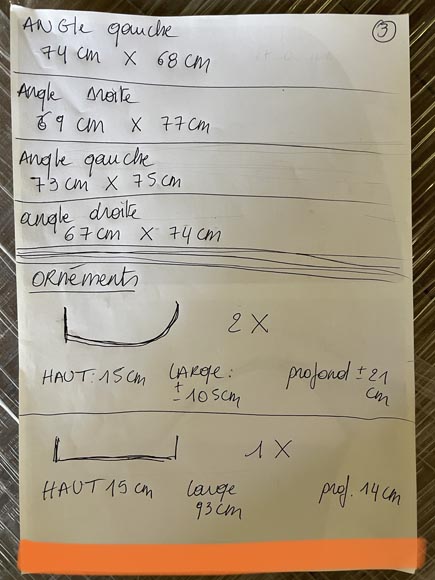 ANGLe gauche
3
74 cm X 68 cm
Angle droite
69 cm X 77cm
Angle gauche
73cm X 75cm
angle droite
67cm X 74cm
ORNéments
2 X
HAUT: 15cm LARGe: profond ± 21
± 105cm cm
1 X
HAUT 15 cm large prof. 14cm
93cm